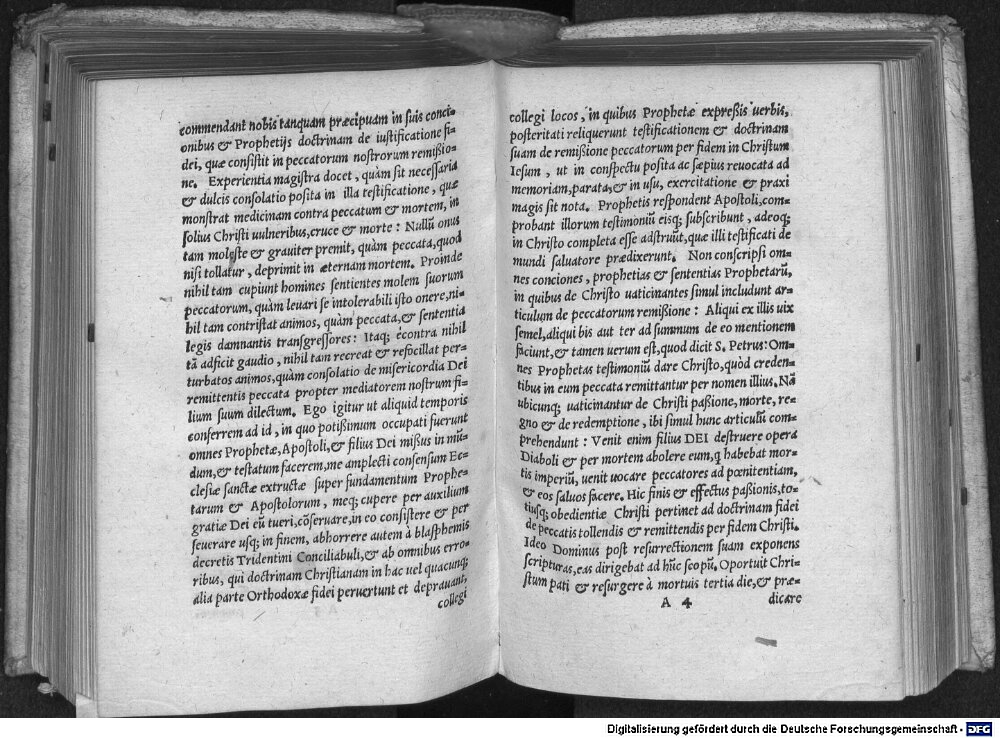 commendant nobis tanquam præcipuam in suis conci-
onibus & Prophetijs doctrinam de iustificatione fi-
dei, quæ consistit in peccatorum nostrorum remißio-
ne. Experientia magistra docet, quàm sit necessaria
& dulcis consolatio posita in illa testificatione, quæ
monstrat medicinam contra peccatum & mortem, in
solius Christi uulneribus, cruce & morte: Nullū onus
tam moleste & grauiter premit, quàm peccata, quod
nisi tollatur, deprimit in æternam mortem. Proinde
nihil tam cupiunt homines sentientes molem suorum
peccatorum, quàm leuari se intolerabili isto onere, ni-
hil tam contristat animos, quàm peccata, & sententia
legis damnantis transgressores: Itaq; écontra nihil
tā adficit gaudio, nihil tam recreat & refocillat per-
turbatos animos, quàm consolatio de misericordia Dei
remittentis peccata propter mediatorem nostrum fi-
lium suum dilectum. Ego igitur ut aliquid temporis
conferrem ad id, in quo potißimum occupati fuerunt
omnes Prophetæ, Apostoli, & filius Dei mißus in mū-
dum, & testatum facerem, me amplecti consensum Ec-
clesiæ sanctæ extructæ super fundamentum Prophe-
tarum & Apostolorum, meq; cupere per auxilium
gratiæ Dei eū tueri, cōseruare, in eo consistere & per
seuerare usq; in finem, abhorrere autem à blasphemis
decretis Tridentini Conciliabuli, & ab omnibus erro-
ribus, qui doctrinam Christianam in hac uel quacunq;
alia parte Orthodoxæ fidei peruertunt et deprauant,
collegi
collegi locos, in quibus Prophetæ expreßis uerbis,
posteritati reliquerunt testificationem & doctrinam
suam de remißione peccatorum per fidem in Christum
Iesum, ut in conspectu posita ac sæpius reuocata ad
memoriam, parata, & in usu, exercitatione & praxi
magis sit nota. Prophetis respondent Apostoli, com-
probant illorum testimoniū eisq; subscribunt, adeoq;
in Christo completa esse adstruūt, quæ illi testificati de
mundi saluatore prædixerunt. Non conscripsi om-
nes conciones, prophetias & sententias Prophetarū,
in quibus de Christo uaticinantes simul includunt ar-
ticulum de peccatorum remißione: Aliqui ex illis uix
semel, aliqui bis aut ter ad summum de eo mentionem
faciunt, & tamen uerum est, quod dicit S. Petrus: Om-
nes Prophetas testimoniū dare Christo, quòd creden-
tibus in eum peccata remittantur per nomen illius. Nā
ubicunq; uaticinantur de Christi paßione, morte, re-
gno & de redemptione, ibi simul hunc articulū com-
prehendunt: Venit enim filius DEI destruere opera
Diaboli & per mortem abolere eum, q habebat mor-
tis imperiū, uenit uocare peccatores ad pœnitentiam,
& eos saluos facere. Hic finis & effectus paßionis, to-
tiusq; obedientiæ Christi pertinet ad doctrinam fidei
de peccatis tollendis & remittendis per fidem Christi.
Ideo Dominus post resurrectionem suam exponens
scripturas, eas dirigebat ad hūc scopū. Oportuit Chri-
stum pati & resurgere à mortuis tertia die, & præ-
A 4 dicare
Digitalisierung gefördert durch die Deutsche Forschungsgemeinschaft - DFG